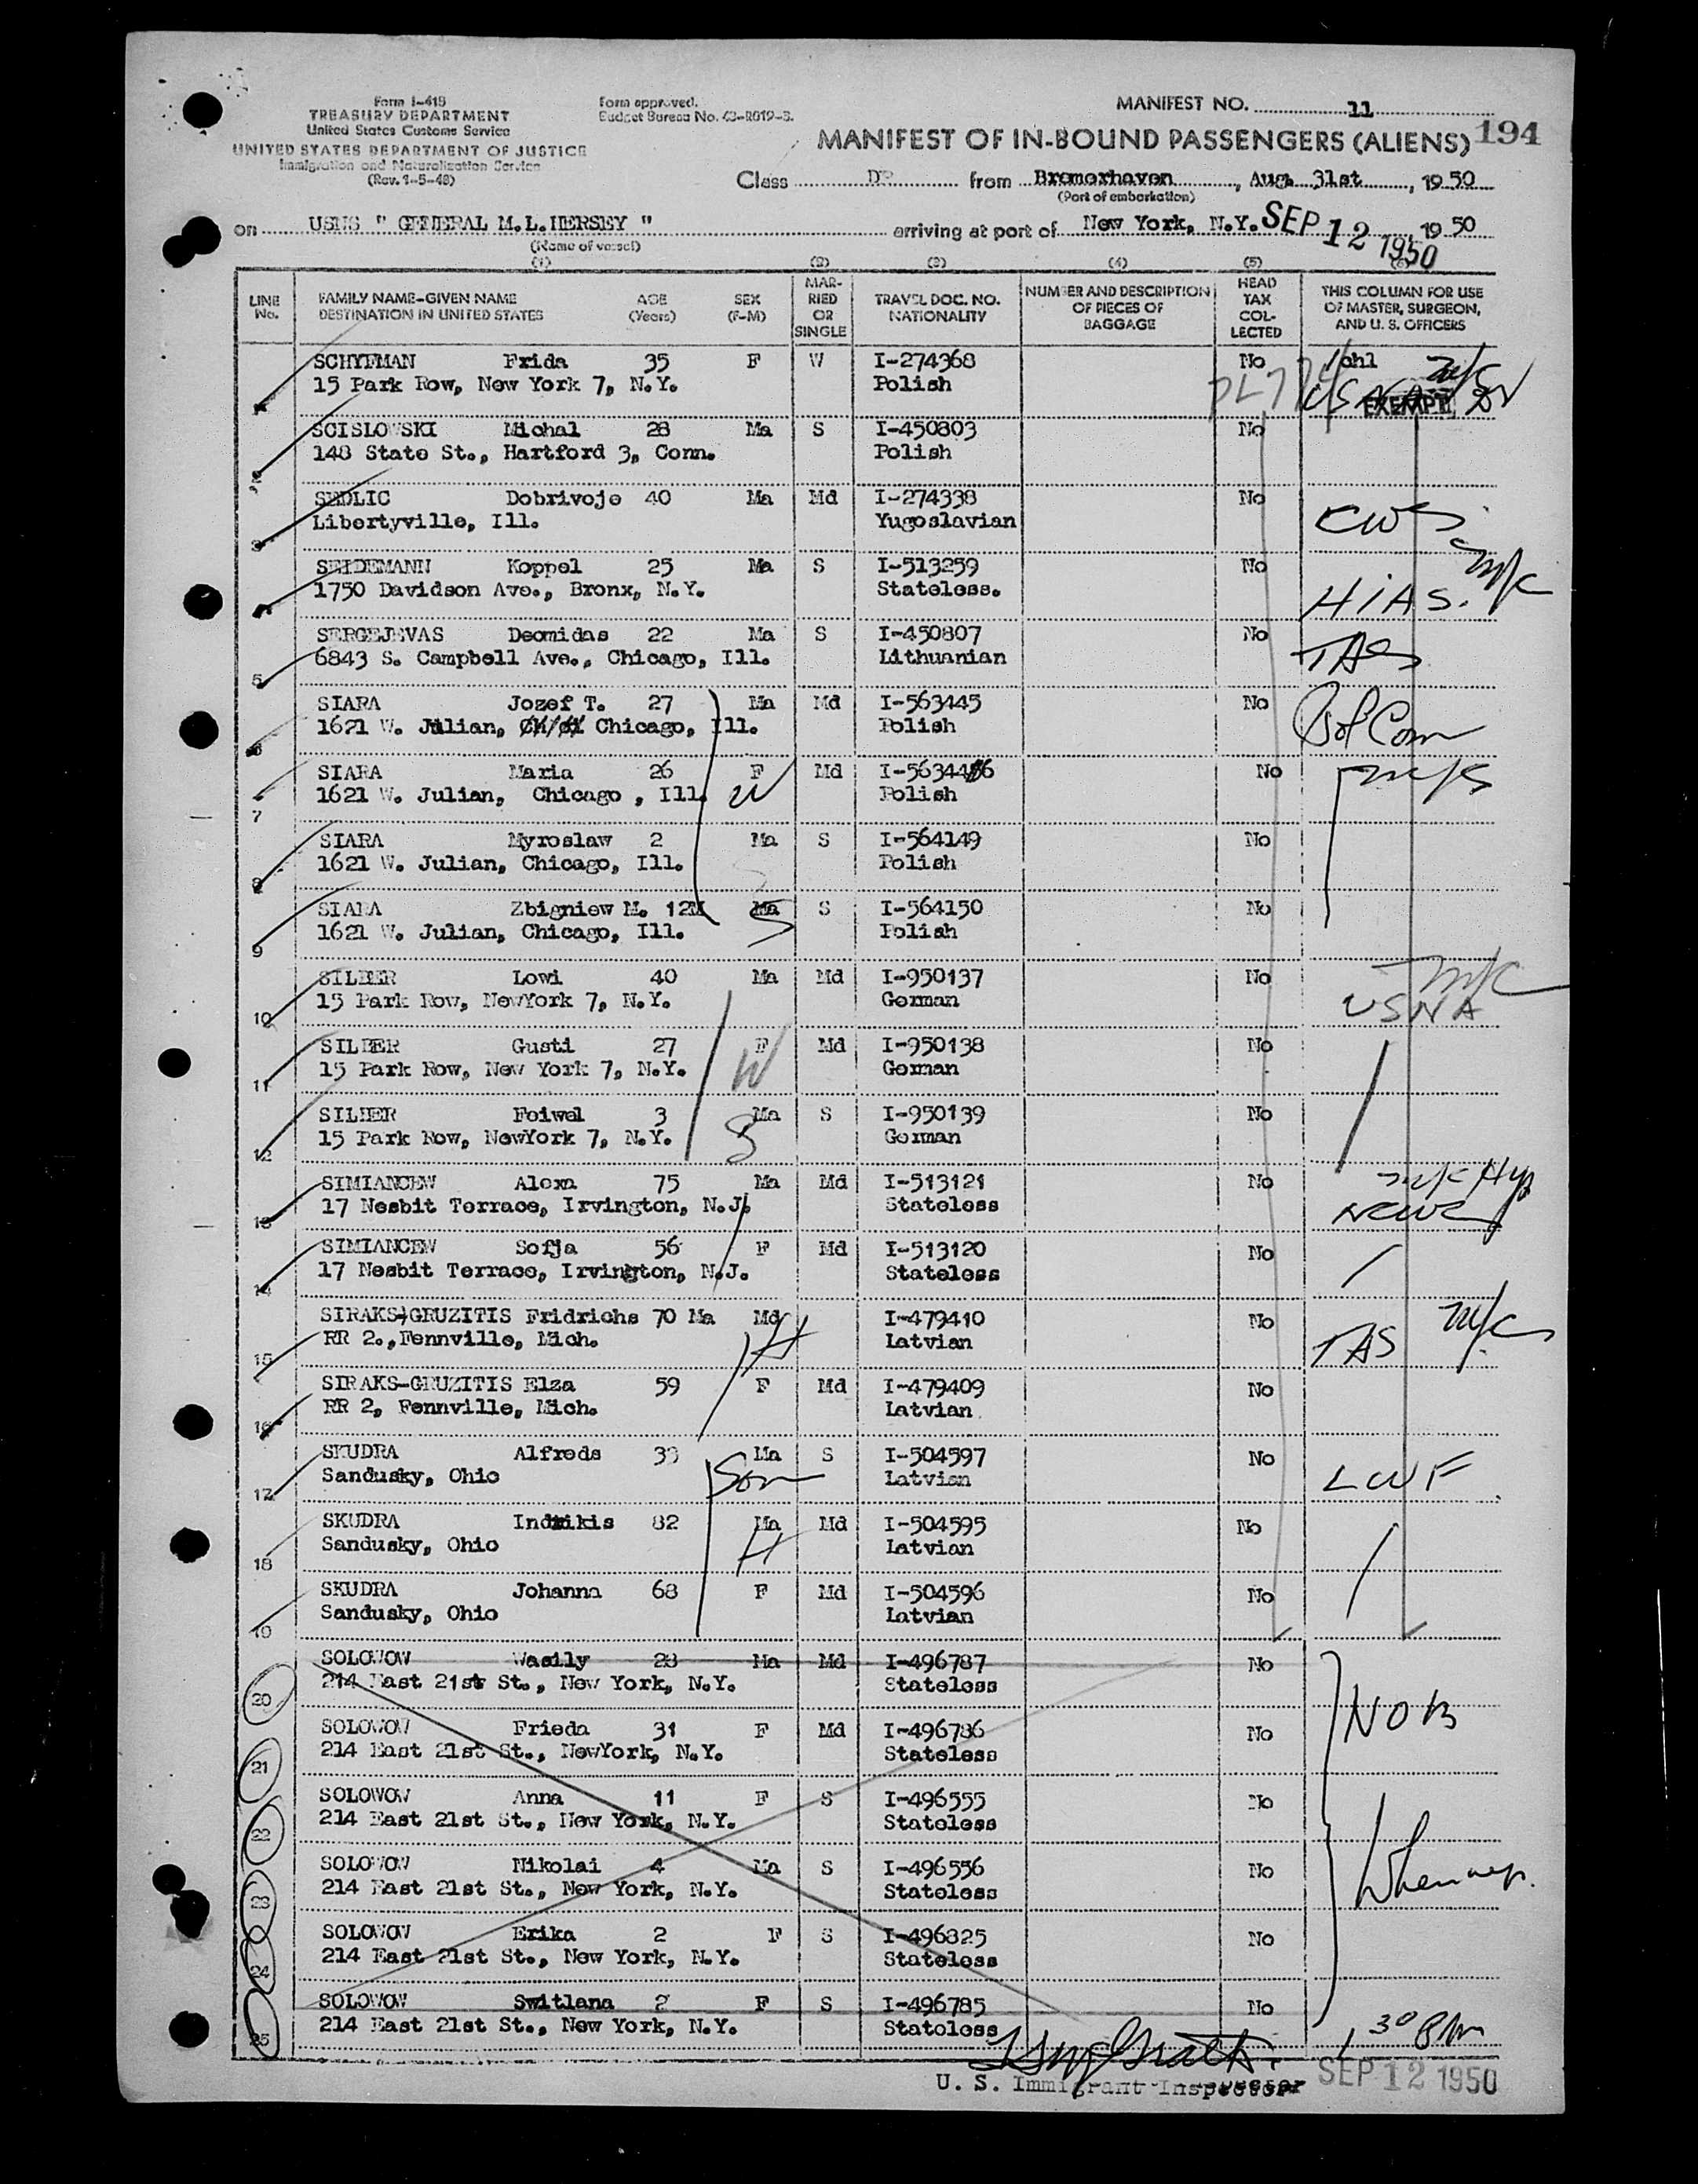 Form I-418
TREASURY DEPARTMENT
United States Customs Service
UNITED STATES DEPARTMENT OF JUSTICE
Immigration and Naturalization Service
(Rev. 1-5-48)
Form approved.
Budget Bureau No. 43-R019-3.
MANIFEST NO. 11
MANIFEST OF IN-BOUND PASSENGERS (ALIENS) 194
Class DP from Bremerhaven, Aug. 31st, 1950
(Port of embarkation)
on USNS " GENERAL M.L.HERSEY " arriving at port of New York, N.Y. SEP 12 1950, 1950
(Name of vessel)
(1) (2) (3) (4) (5) (6)
LINE No. FAMILY NAME-GIVEN NAME DESTINATION IN UNITED STATES AGE (Years) SEX (F-M) MARRIED OR SINGLE TRAVEL DOC. NO. NATIONALITY NUMBER AND DESCRIPTION OF PIECES OF BAGGAGE HEAD TAX COLLECTED THIS COLUMN FOR USE OF MASTER, SURGEON, AND U. S. OFFICERS
SCHYFMAN Frida 35 F W I-274368 No 1ch1
15 Park Row, New York 7, N.Y. Polish EXEMPT
SCISLOWSKI Michal 28 Ma S I-450803 No
2 148 State St., Hartford 3, Conn. Polish
SEDLIC Dobrivoje 40 Ma Md I-274338 No
3 Libertyville, Ill. Yugoslavian CWS
SEIDEMANN Koppel 25 Ma S I-513259 No
1750 Davidson Ave., Bronx, N.Y. Stateless. HIAS.
SERGEJEVAS Deomidas 22 Ma S I-450807 No
5 6843 S. Campbell Ave., Chicago, Ill. Lithuanian TAS
SIARA Jozef T. 27 Ma Md I-563445 No
6 1621 W. Julian, Chicago, Ill. Polish Pol Com
SIARA Maria 26 F Md I-563446 No
7 1621 W. Julian, Chicago , Ill. W Polish
SIARA Myroslaw 2 Ma S I-564149 No
8 1621 W. Julian, Chicago, Ill. Polish
SIARA Zbigniew M. 12M Ma S I-564150 No
9 1621 W. Julian, Chicago, Ill. S Polish
SILBER Lowi 40 Ma Md I-950137 No
10 15 Park Row, NewYork 7, N.Y. German USNA
SILBER Gusti 27 F Md I-950138 No
11 15 Park Row, New York 7, N.Y. W German
SILBER Feiwel 3 Ma S I-950139 No
12 15 Park Row, NewYork 7, N.Y. S German
SIMIANCEW Alexa 75 Ma Md I-513121 No
13 17 Nesbit Terrace, Irvington, N.J. Stateless
SIMIANCEW Sofja 56 F Md I-513120 No
14 17 Nesbit Terrace, Irvington, N.J. Stateless
SIRAKS-GRUZITIS Fridrichs 70 Ma Md I-479410 No
15 RR 2.,Fennville, Mich. H Latvian TAS
SIRAKS-GRUZITIS Elza 59 F Md I-479409 No
16 RR 2, Fennville, Mich. Latvian
SKUDRA Alfreds Ma S I-504597 No
17 Sandusky, Ohio Son Latvian LWF
SKUDRA Indrikis 82 Ma Md I-504595 No
18 Sandusky, Ohio H Latvian
SKUDRA Johanna 68 F Md I-504596 No
19 Sandusky, Ohio Latvian
SOLOWOW Wasily 28 Ma Md I-496787 No
20 214 East 21st St., New York, N.Y. Stateless
SOLOWOW Frieda 31 F Md I-496786 No NOB
21 214 East 21st St., NewYork, N.Y. Stateless
SOLOWOW Anna 11 F S I-496555 No
22 214 East 21st St., New York, N.Y. Stateless
SOLOWOW Nikolai 4 Ma S I-496556 No
23 214 East 21st St., New York, N.Y. Stateless
SOLOWOW Erika 2 F S I-496825 No
24 214 East 21st St., New York, N.Y. Stateless
SOLOWOW Switlana 2 F S I-496785 No
25 214 East 21st St., New York, N.Y. Stateless 1 30 PM
U. S. Immigrant Inspector SEP 12 1950